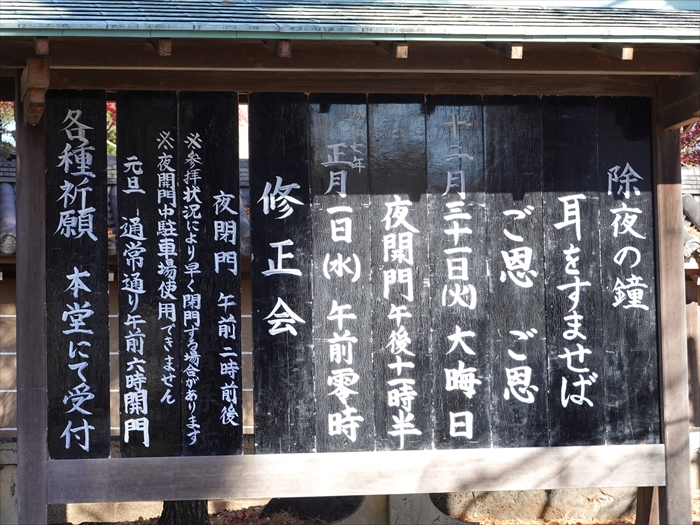 除夜の鐘
耳をすませば
ご恩 ご恩
十二月三十一日(火)大晦日
夜開門 午後十一時半
令和七年
正月一日(水)午前零時
修正会
夜閉門 午前二時前後
※参拝状況により早く閉門する場合があります
※夜開門中駐車場使用できません
元旦 通常通り午前六時開門
各種祈願 本堂にて受付